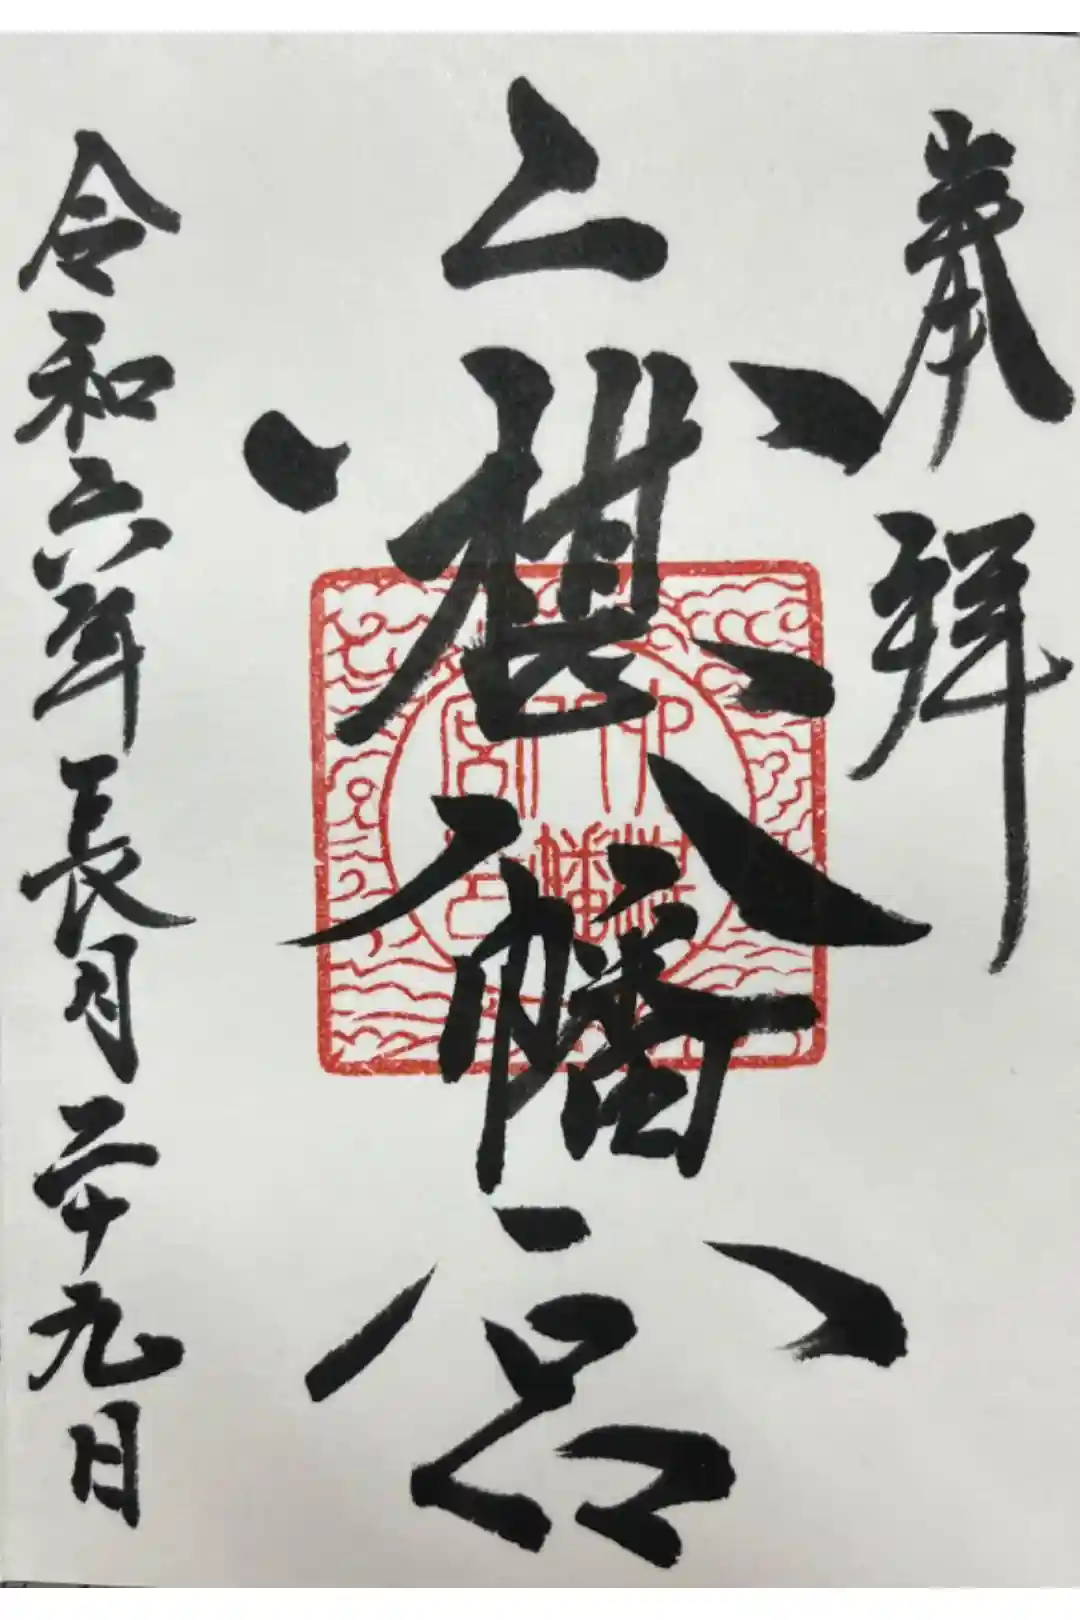 奉拝
六椹八幡宮
令和六年長月二十九日